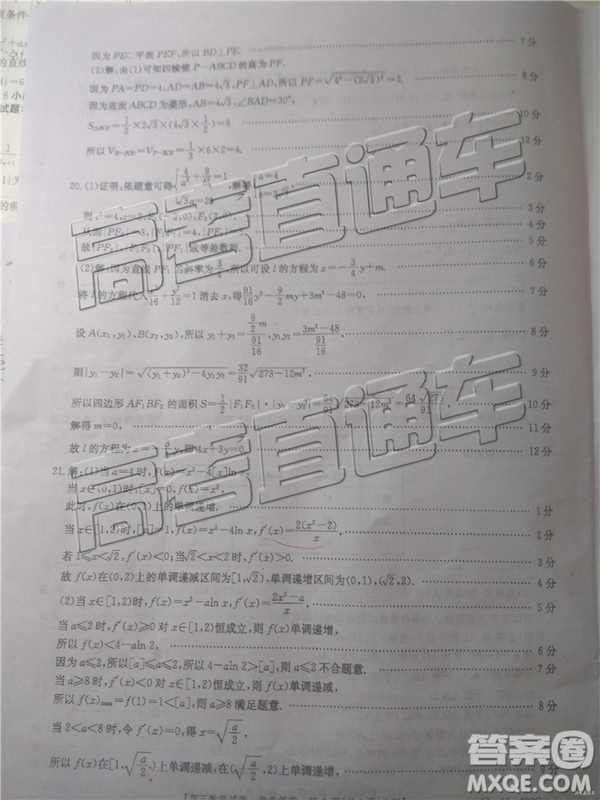 因为PE⊂平面PEF,所以BD⊥PE. 7分
(2)解:由(1)可知四棱锥P-ABCD的高为PF.
因为PA=PD=4,AD=AB=4√3,PF⊥AD,所以PF=√(4²-(2√3)²)=2. 8分
因为底面ABCD为菱形,∠BAD=30°,
=1/2×2√3×(4√3×1/2)=6 10分
=1/3×6×2=4. 12分
20.(1)证明:依题意可得 4/a² 9/ =1 解得 a=4 2分
则 =4,c=2, (-2,0),F₂(2,0). 3分
从而|PF₂|=3, =4, =5 4分
故|PF₂|,|F₁F₂|, 成等差数列. 5分
(2)解:因为直线 的斜率为 所以可设l的方程为x=-3/4y+m. 6分
将l的方程代入 /16 + y²/12=1消去x,得91/16y²-9/2my+3m²-48=0, 7分
设A(x₁,y₁),B(x₂,y₂),所以y₁+y₂=(9/2m)/(91/16),y₁y₂=(3m²-48)/(91/16), 8分
则|y₁-y₂|=√((y₁+y₂)²-4y₁y₂)=32/91√(273-12m²), 9分
所以四边形AF₁BF₂的面积S=1/2|F₁F₂|·|y₁-y₂|= 10分
解得m=0, 11分
故l的方程为x= y,即4x+3y=0. 12分
21.解:(1)当a=4时,f(x)=x²-4[x]ln x.
当x∈(0,1)时,[x]=0,f(x)=x²,
此时,f(x)在(0,1)上单调递增. 1分
当x∈[1,2)时,[x]=1,f(x)=x²-4ln x,f′(x)=2(x²-2)/x, 2分
若1≤x<√2,f′(x)<0;当√2<x<2时,f′(x)>0. 3分
故f(x)在(0,2)上的单调递减区间为[1,√2),单调递增区间为(0,1),(√2,2). 4分
(2)当x∈[1,2)时,f(x)=x²-aln x,f′(x)=(2x²-a)/x, 5分
当a≤2时,f′(x)≥0对x∈[1,2)恒成立,则f(x)单调递增,
所以f(x)<4-aln 2, 6分
因为a≤2,所以[a]≤a≤2,所以4-aln 2>[a],则a≤2不合题意. 7分
当a≥8时,f′(x)<0对x∈[1,2)恒成立,则f(x)单调递减,
所以f(x)max=f(1)=1<[a],则a≥8满足题意. 8分
当2<a<8时,令f′(x)=0,得x=√(a/2),
所以f(x)在[1,√(a/2))上单调递减,在(√(a/2),2)上单调递增, 9分
高考直通车
高考直通车
答案圈